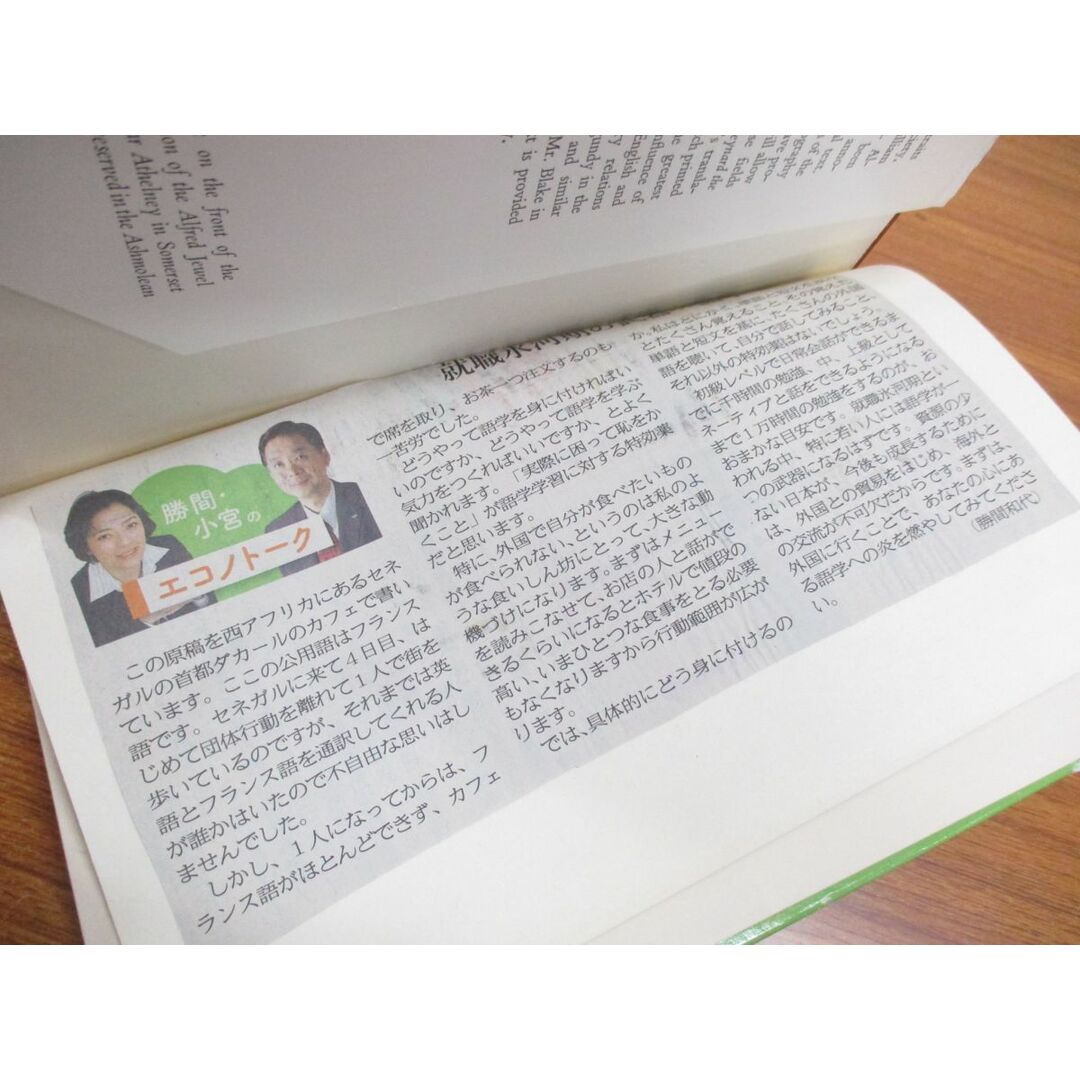 on the front of the
on of the Alfred Jewel
ur Athelney in Somerset
eserved in the Ashmolean
Al.
been
text.
of the
graphy
ave
ill pro-
allow
se
fields
eynard the
's transla-
ch printed
e greatest
influence of
English and
undy in the
y relations
and similar
Mr. Blake in
t is provided
勝間・
小宮の
エコノトーク
この原稿を西アフリカにあるセネ
ガルの首都ダカールのカフェで書い
ています。ここの公用語はフランス
語です。セネガルに来て4日目、は
じめて団体行動を離れて1人で街を
歩いているのですが、それまでは英
語とフランス語を通訳してくれる人
が誰かはいたので不自由な思いはし
ませんでした。
しかし、1人になってからは、フ
ランス語がほとんどできず、カフェ
就職氷河期の
で席を取り、お茶一つ注文するのも
一苦労でした。
どうやって語学を身に付ければい
いのですか、どうやって語学を学ぶ
気力をつくればいいですか、とよく
聞かれます。「実際に困って恥をか
くこと」が語学学習に対する特効薬
だと思います。
特に、外国で自分が食べたいもの
が食べられない、というのは私のよ
うな食いしん坊にとって、大きな動
機づけになります。まずはメニュー
を読みこなせて、お店の人と話がで
きるくらいになるとホテルで値段の
高い、いまひとつな食事をとる必要
もなくなりますから行動範囲が広が
ります。
では、具体的にどう身に付けるの
か。私はとにかく、単語と短文を
とたくさん覚えること、その覚えた
単語と短文を基に、たくさんの外国
語を聴いて、自分で話してみること、
それ以外の特効薬はないでしょう。
初級レベルで日常会話ができるま
でに千時間の勉強、中、上級として
ネーティブと話をできるようになる
まで1万時間の勉強をするのが、お
おまかな目安です。就職氷河期とい
われる中、特に若い人には語学が一
つの武器になるはずです。資源の少
ない日本が、今後も成長するために
は、外国との貿易をはじめ、海外と
の交流が不可欠だからです。まずは、
外国に行くことで、あなたの心にあ
る語学への炎を燃やしてみてくださ
い。
（勝間和代）